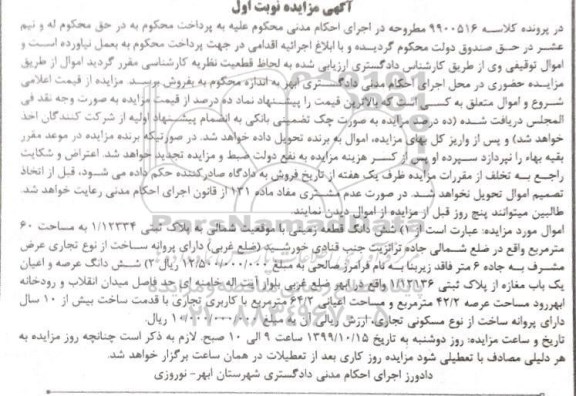 آگهی مزایده نوبت اول
در پرونده کلاسه ۹۹۰۰۵۱۶ مطروحه در اجرای احکام مدنی محکوم علیه به پرداخت محکوم به در حق محکوم له و نیم
عشر در حق صندوق دولت محکوم گردیده و با ابلاغ اجرائیه اقدامی در جهت پرداخت محکوم به بعمل نیاورده است و
اموال توقیفی وی از طریق کارشناس دادگستری ارزیابی شده به لحاظ قطعیت نظریه کارشناسی مقرر گردید اموال از طریق
مزایده حضوری در محل اجرای احکام مدنی دادگستری ابهر به اندازه محکوم به بفروش برسد. مزایده از قیمت اعلامی
شروع و اموال متعلق به کسی است که بالاترین قیمت را پیشنهاد نماد ده درصد از قیمت مزایده به صورت وجه نقد فی
المجلس دریافت شده (ده درصد مزایده به صورت چک تضمینی بانکی به انضمام پیشنهاد اولیه از شرکت کنندگان اخذ
خواهد شد) و پس از واریز کل بهای مزایده، اموال به برنده تحویل داده خواهد شد. در صورتیکه برنده مزایده در موعد مقرر
بقیه بهاء را نپردازد سپرده او پس از کسر هزینه مزایده به نفع دولت ضبط و مزایده تجدید خواهد شد. اعتراض و شکایت
راجع به تخلف از مقررات مزایده ظرف یک هفته از تاریخ فروش به دادگاه صادرکننده حکم داده می شود، قبل از اتخاذ
تصمیم اموال تحویل نخواهد شد. در صورت عدم مشتری مفاد ماده ۱۳۱ از قانون اجرای احکام مدنی رعایت خواهد شد.
طالبین میتوانند پنج روز قبل از مزایده از اموال دیدن نمایند.
اموال مورد مزایده: عبارت است از ۱) شش دانگ قطعه زمینی با موقعیت شمالی به پلاک ثبتی ۱/۱۲۳۳۴ به مساحت ۶۰
مترمربع واقع در ضلع شمالی جاده ترانزیت جنب قنادی خورشید (ضلع غربی) دارای پروانه ساخت از نوع تجاری عرض
مشرف به جاده ۶ متر فاقد زیربنا به نام فرامرز صالحی به مبلغ ۱۲/۵۰۰/۰۰۰/۰۰۰ ریال ۲) شش دانگ عرصه و اعیان
یک باب مغازه از پلاک ثبتی واقع در ابهر ضلع غربی بلوار آیت اله خامنه ای حد فاصل میدان انقلاب و رودخانه
ابهررود مساحت عرصه ۴۲/۲ مترمربع و مساحت اعیانی ۶۴/۲ مترمربع با کاربری تجاری با قدمت ساخت بیش از ۱۰ سال
دارای پروانه ساخت از نوع مسکونی تجاری، ارزش ریالی آن به مبلغ ریال.
تاریخ و ساعت مزایده: روز دوشنبه به تاریخ ۱۳۹۹/۱۰/۱۵ ساعت ۹ الی ۱۰ صبح. لازم به ذکر است چنانچه روز مزایده به
هر دلیلی مصادف با تعطیلی شود مزایده روز کاری بعد از تعطیلات در همان ساعت برگزار خواهد شد.
دادورز اجرای احکام مدنی دادگستری شهرستان ابهر- نوروزی